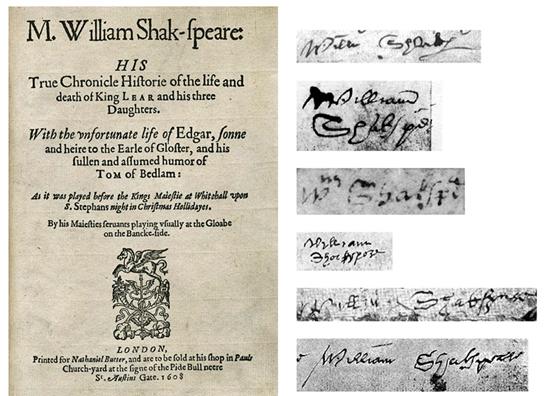 M. William Shak-ſpeare:
HIS
True Chronicle Hiſtorie of the life and
death of King LEAR and his three
Daughters.
With the vnfortunate life of Edgar, ſonne
and heire to the Earle of Gloſter, and his
ſullen and aſſumed humor of
TOM of Bedlam:
As it was played before the Kings Maieſtie at Whitehall vpon
S. Stephans night in Chriſtmas Hollidayes.
By his Maieſties ſeruants playing vſually at the Gloabe
on the Bancke-ſide.
LONDON,
Printed for Nathaniel Butter, and are to be ſold at his ſhop in Pauls
Church-yard at the ſigne of the Pide Bull neere
St. Auſtins Gate. 1608
William
William
William